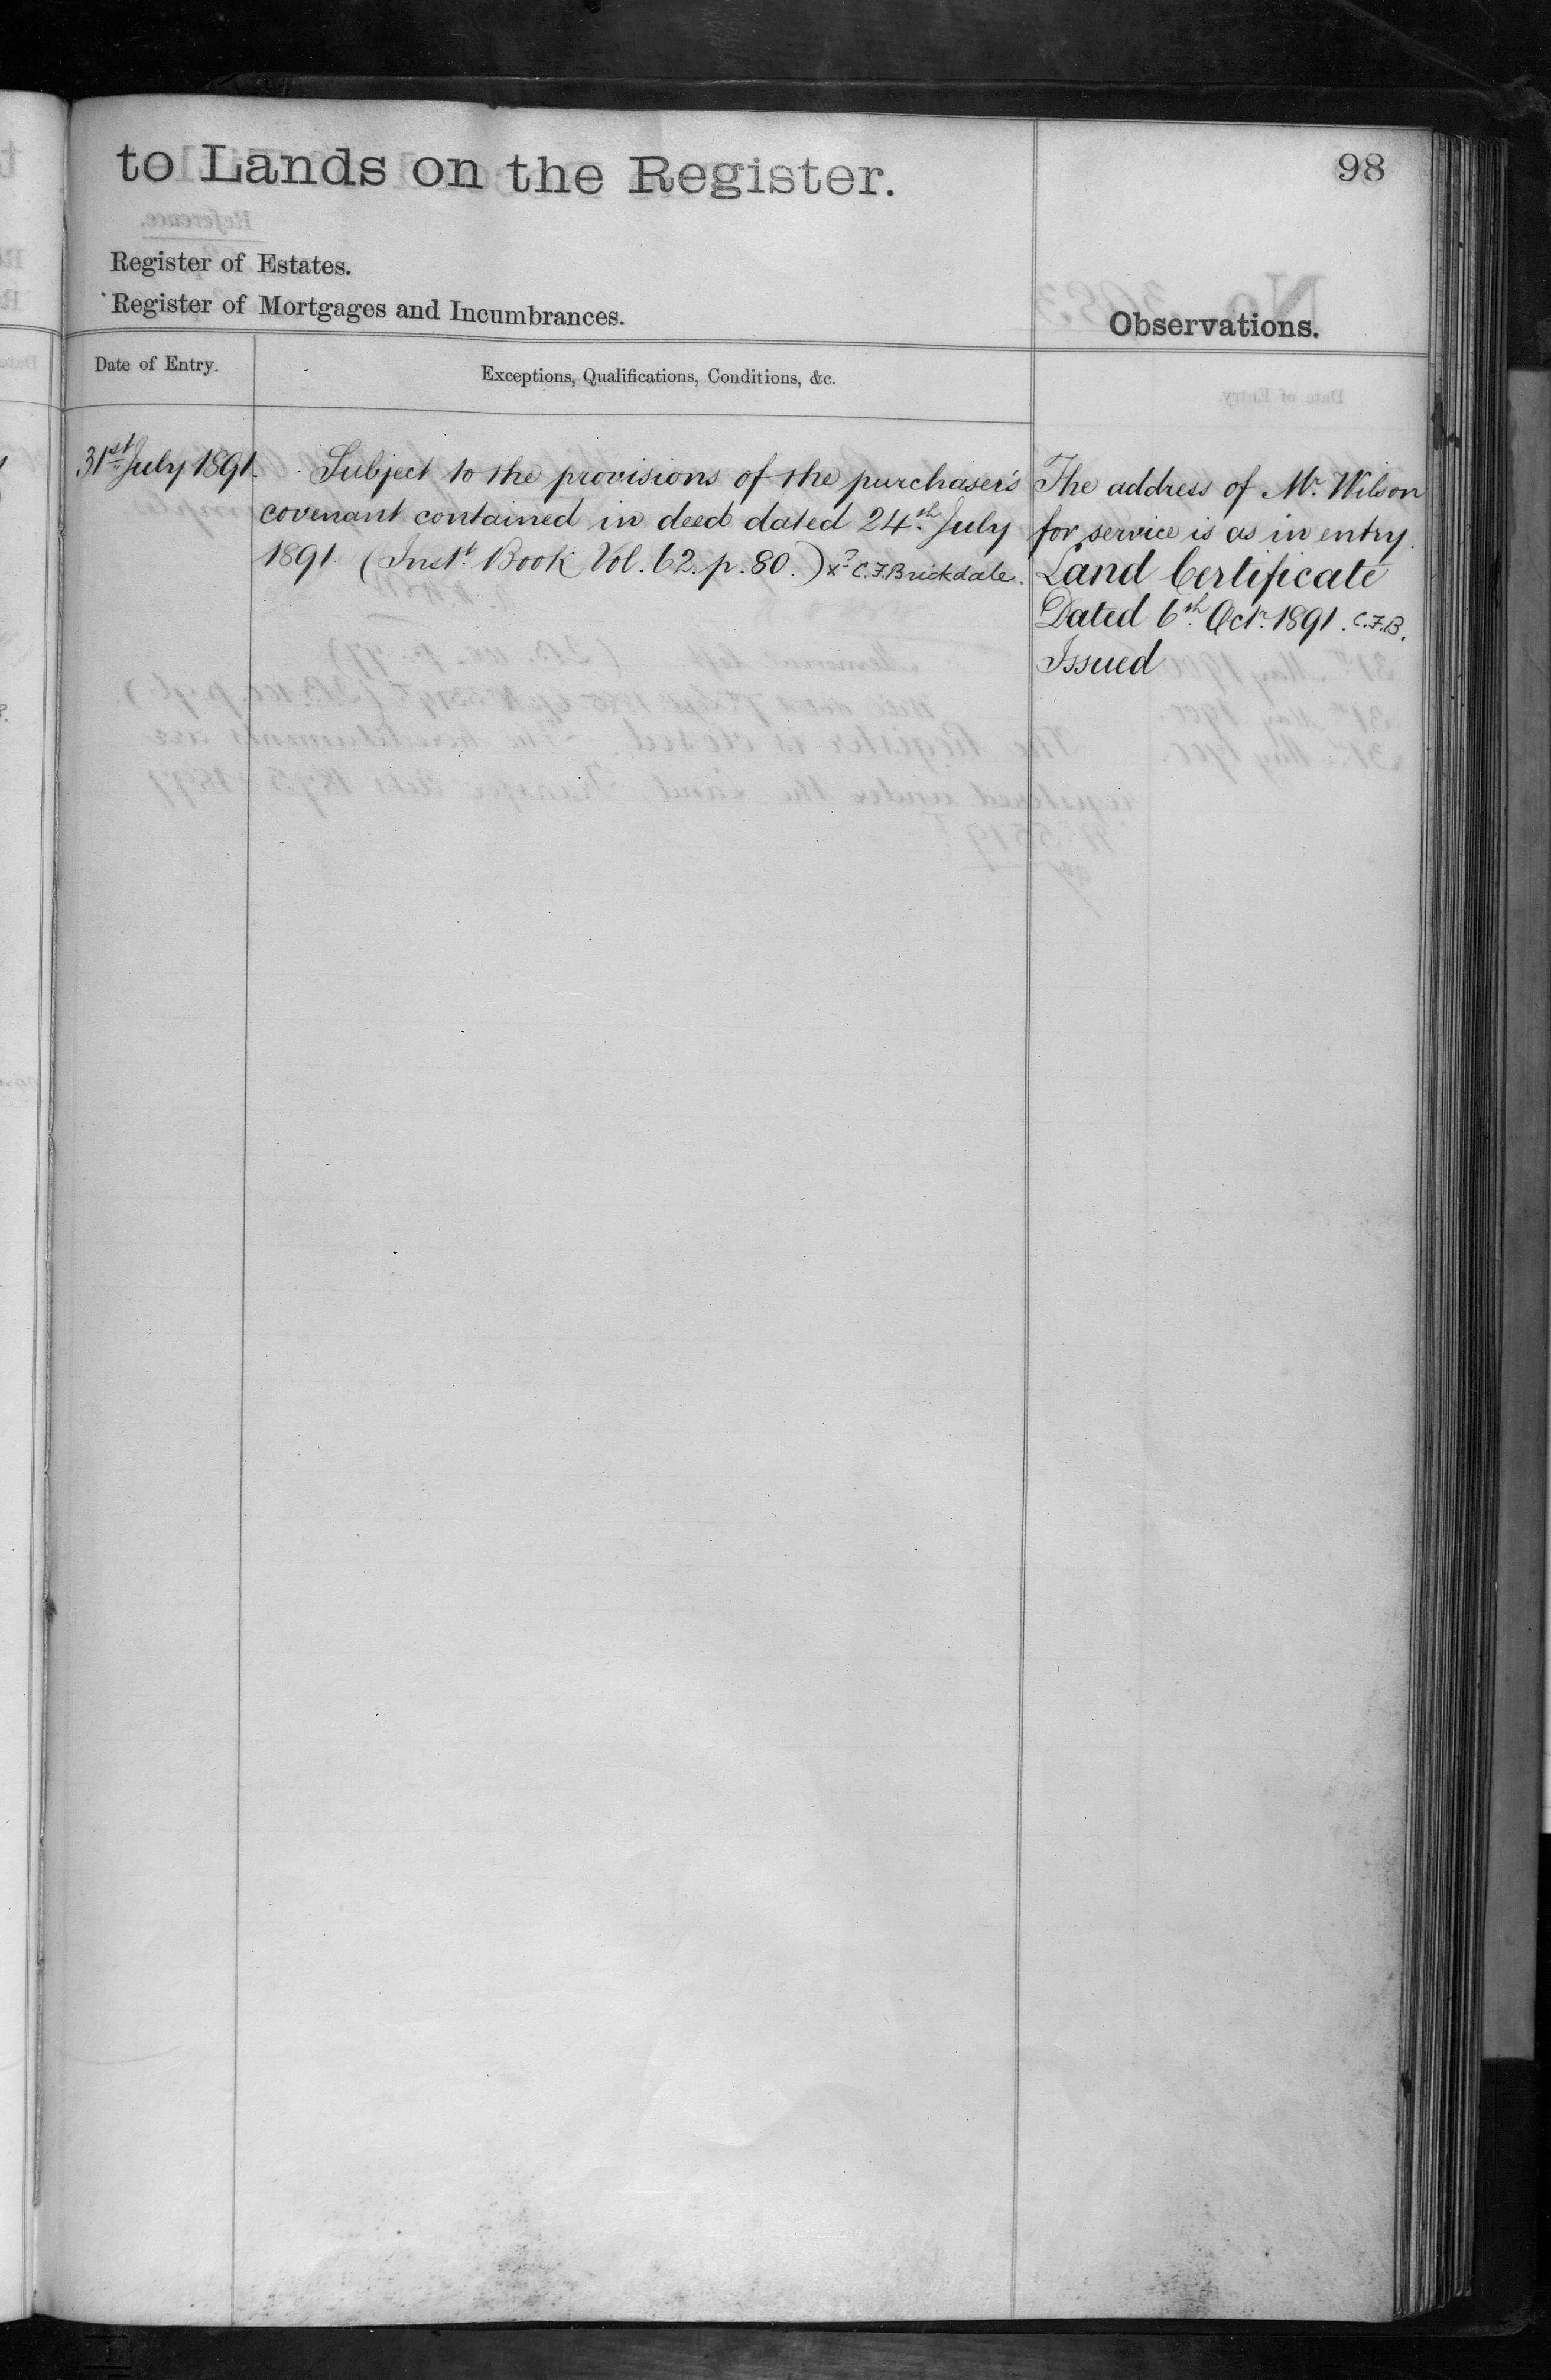 to Lands on the Register.
98
Register of Estates.
Register of Mortgages and Incumbrances.
Observations.
Date of Entry.
Exceptions, Qualifications, Conditions, &c.
31st July 1891.
Subject to the provisions of the purchaser's
covenant contained in deed dated 24th July
1891 (Inst. Book Vol. 62. p. 80.) C.F. Brickdale.
The address of Mr. Wilson
for service is as in entry.
Land Certificate
Dated 6th Octr. 1891. C.F.B.
Issued